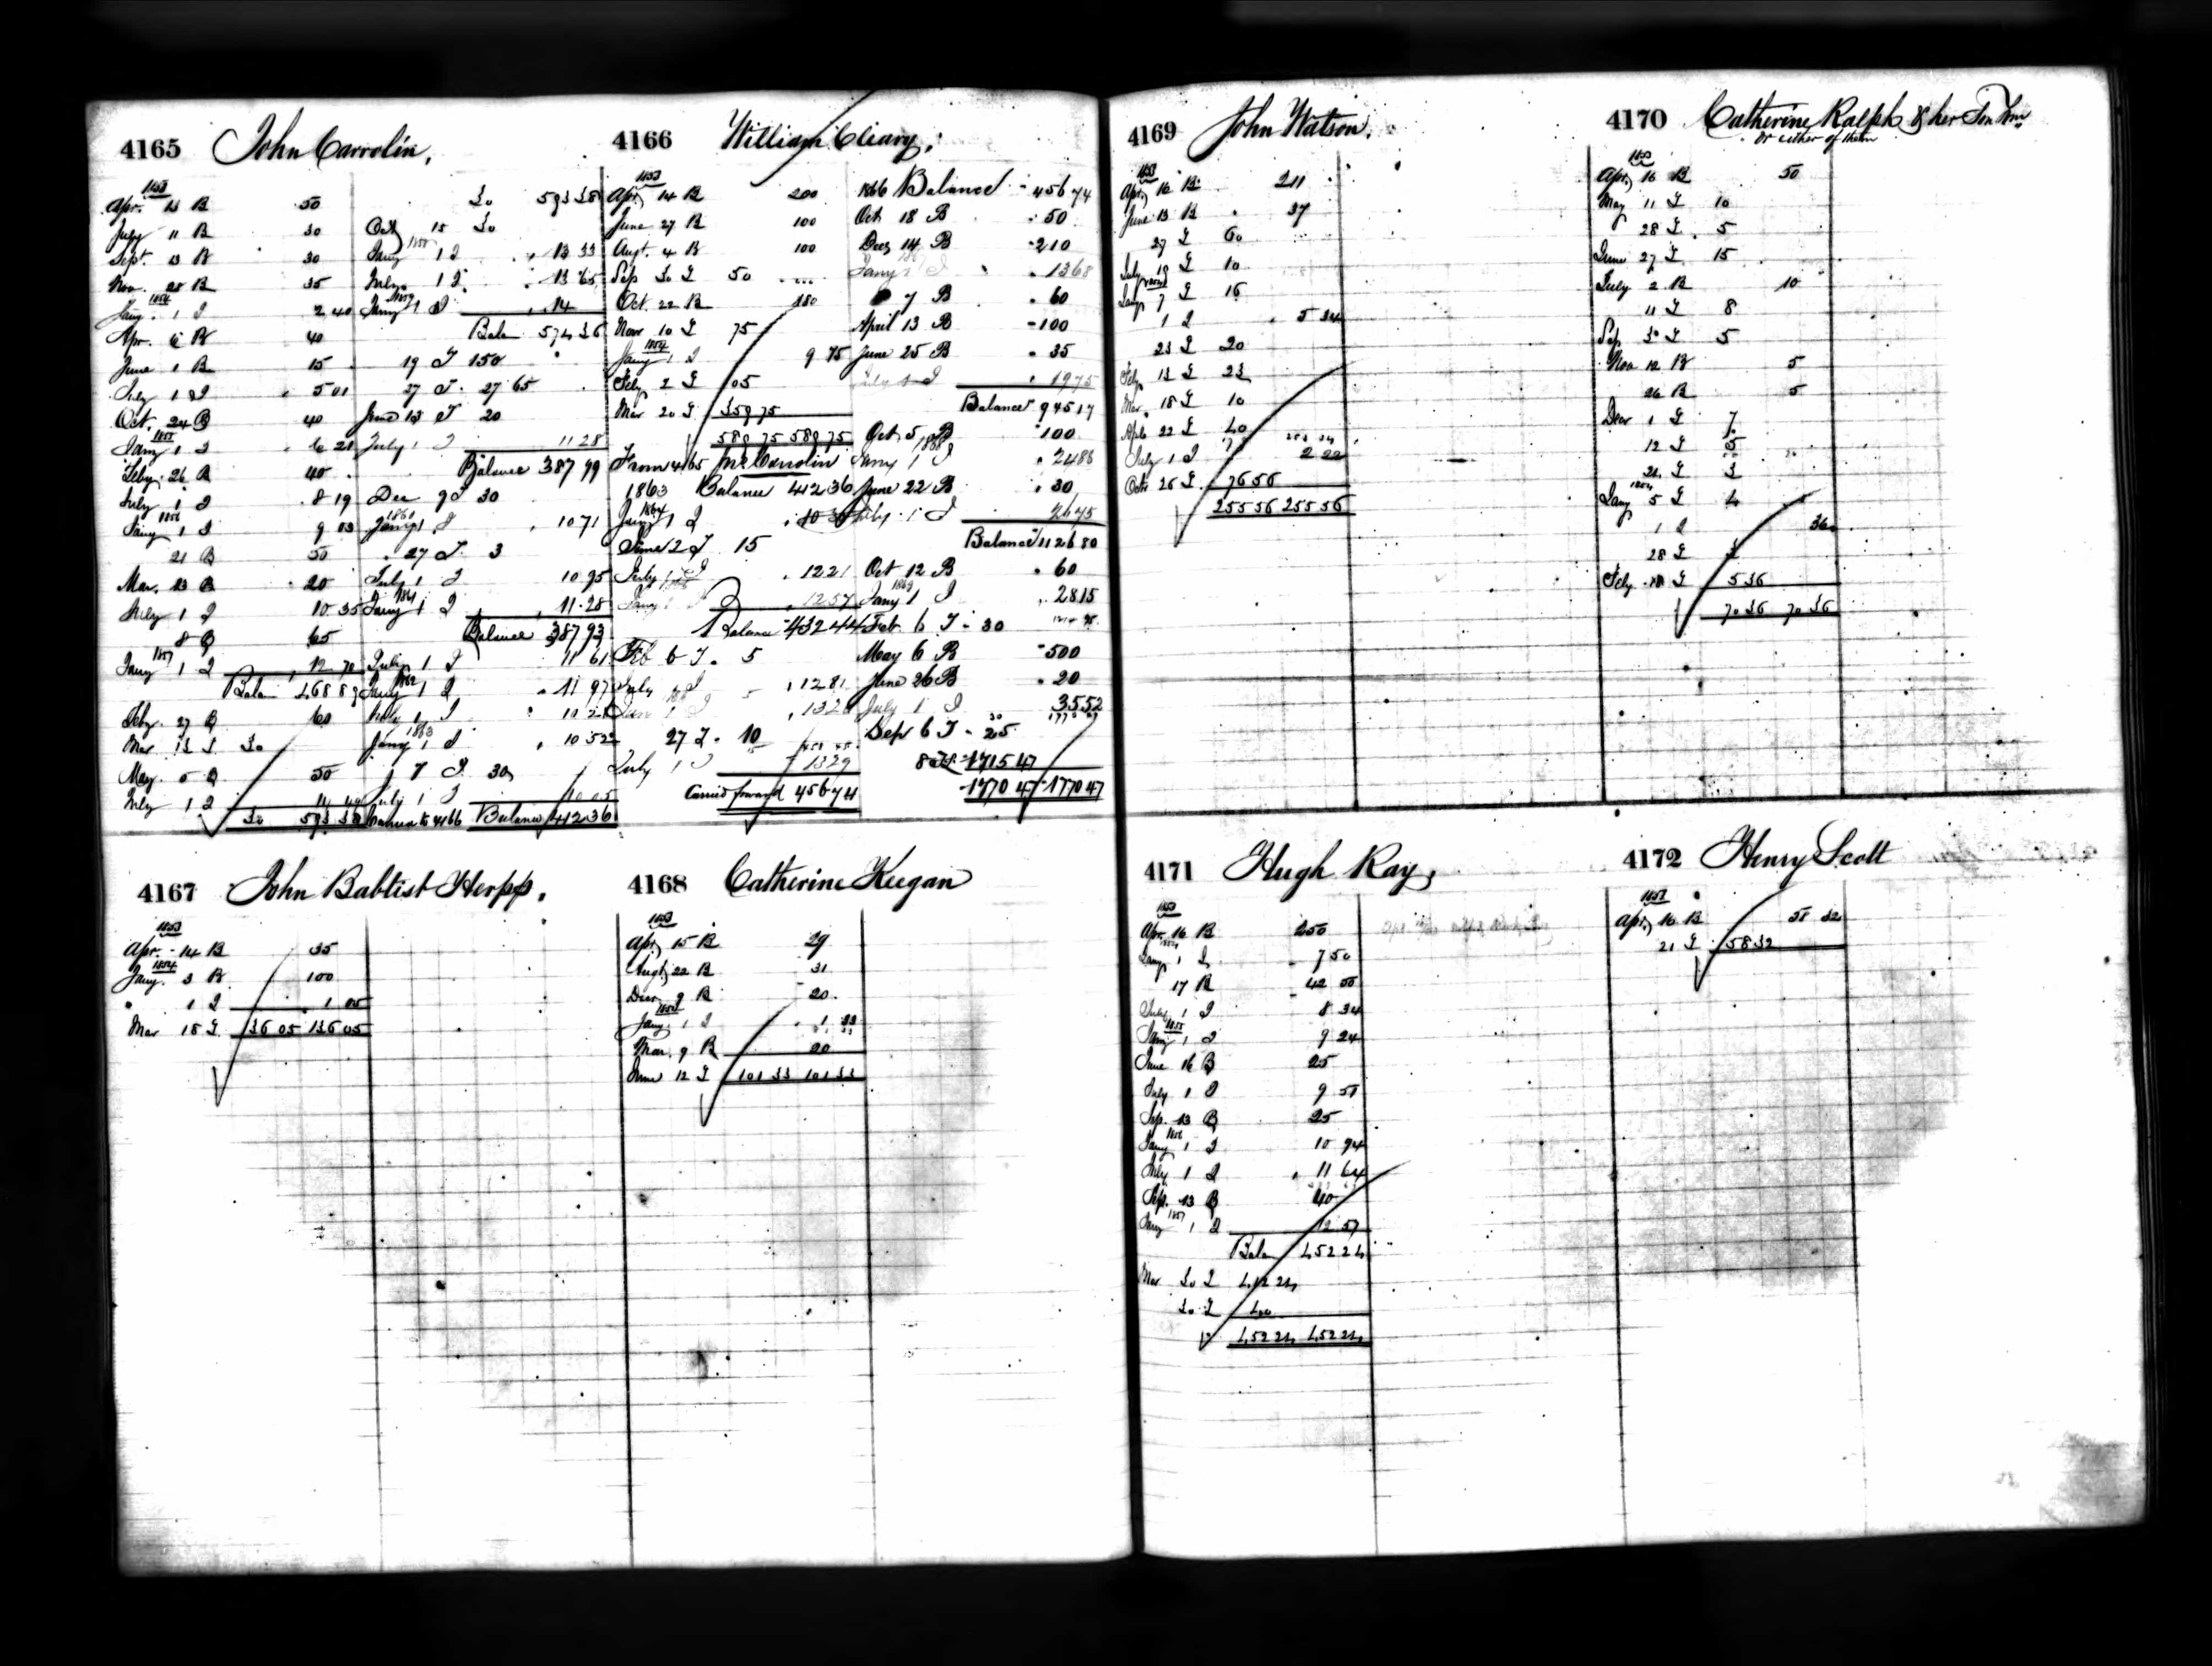 4165 John Carrolin,
1853
Apr. 13 B 50
July 11 B 30
Sept. 13 B 30
Nov. 28 B 35
1854
Jany. 1 I 2 40
Apr. 6 B 40
June 1 B 15
July 1 I 5 01
Oct. 24 B 40
1855
Jany 1 I 6 21
Feby. 26 B 40
July 1 I 8 19
1856
Jany 1 I 9 03
21 B 50
Mar. 13 B 20
July 1 I 10 35
8 B 65
1857
Jany 1 I 12 70
Balan 468 89
Feby. 27 B 60
Mar 13 T 30
May. 5 B 50
July 1 I 14 49
30 593 38
30 593 38
Oct 15 30
1858
Jany 1 I 13 33
July. 1 I 13 65
1859
Jany 1 I 14
Balan 574 36
19 T 150
27 T. 27 65
June 13 T 20
July 1 I 11 28
Balance 387 99
Dec 9 T 30
1860
Jany 1 I 10 71
27 T. 3
July 1 I 10 95
1861
Jany 1 I 11.28
Balance 387 93
July 1 I 11 61
1862
Jany 1 I 11 97
July 1 I
1863
Jany 1 I 10 52
7 T. 30
July 1 I 10 05
Carried to 4166 Balance 412 36
4166 William Cleary,
1853
Apr. 14 B 200
June 27 B 100
Augt. 4 B 100
Sep 30 T 50
Oct. 22 B 180
Nov 10 T 75
1854
Jany 1 I 9 75
Feby 2 T 105
Mar 20 T 359 75
589 75 589 75
From 4165 Jno Carrolin
1863 Balance 412 36
1864
Jany 1 I 10 30
June 2 T 15
July 1 I 12 21
Jany 1 I 12 57
Balance 432 44
Feb 6 T. 5
July 1 I 12 81
Jan 1 I
27 T. 10
July 1 I 13 29
Carried forward 456 74
1866 Balance 456 74
Oct 18 B 50
Dec 14 B 210
1867
Jany 1 I 13 68
7 B 60
April 13 B 100
June 25 B 35
July 1 I 19 75
Balance 945 17
Oct. 5 B 100
1868
Jany 1 I 24 88
June 22 B 30
July 1 I 26 75
Balance 1126 80
Oct 12 B 60
1869
Jany 1 I 28 15
Feb. 6 T - 30
May 6 B 500
June 26 B 20
July 1 I 35 52
Sep 6 T - 25
8 T 1715 47
1770 47 1770 47
4167 John Babtist Herpp.
1853
Apr. 14 B 35
1854
Jany. 3 B 100
" 1 I 1 05
Mar 18 T. 136 05 136 05
4168 Catherine Keegan
1853
Apr, 15 B 29
Augt, 22 B 31
Decr 9 B 20
1854
Jany. 1 I 1 33
Mar. 9 B 20
June 12 T 101 33 101 33
4169 John Watson,
1853
Apr, 16 B 211
June 13 B 37
27 T 60
July 19 T 10
1854
Jany 7 T 16
1 I 5 34
23 T 20
Feby. 13 T 23
Mar. 18 T 10
Apl. 22 T 40
July 1 I 2 22
Octr 26 T 76 56
255 56 255 56
4170 Catherine Ralph & her Son Wm
or either of them
1853
Apr, 16 B 50
May 11 T 10
28 T 5
June 27 T 15
July 2 B 10
11 T 8
Sep. 30 T 5
Nov 12 B 5
26 B 5
Decr 1 T 7
12 T 5
21 T 3
1854
Jany 5 T 4
1 I 36
28 T 3
Feby. 18 T 5 36
70 36 70 36
4171 Hugh Ray,
1853
Apr. 16 B 250
1854
Jany 1 I 7 50
17 B 42 50
July 1 I 8 34
1855
Jany 1 I 9 24
June 16 B 25
July 1 I 9 51
Sep. 13 B 25
1856
Jany 1 I 10 94
July 1 I 11 64
Sep. 13 B 40
1857
Jany 1 I 12 57
Balan 452 24
Mar 30 T 412 24
30 T 40
452 24 452 24
4172 Henry Scott
1853
Apr, 16 B 58 32
21 T 58 32